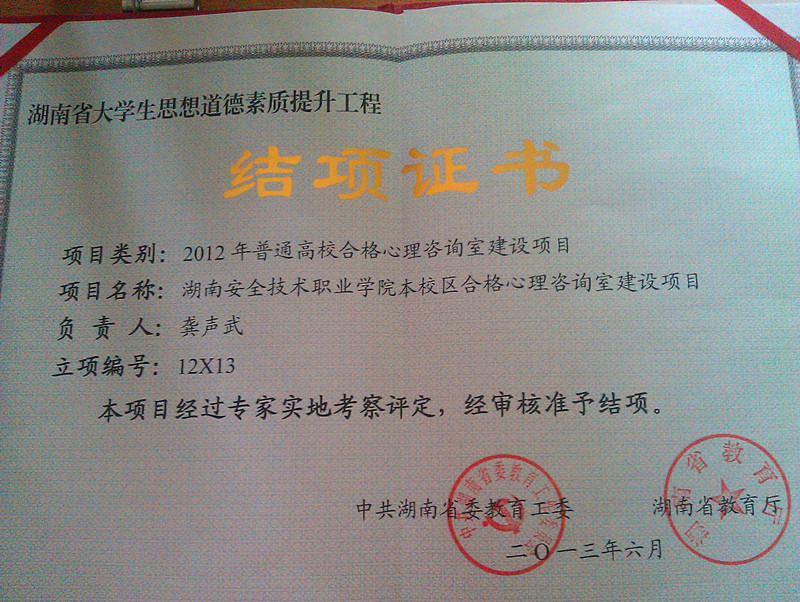 湖南省大学生思想道德素质提升工程
结项证书
项目类别：2012年普通高校合格心理咨询室建设项目
项目名称：湖南安全技术职业学院本校区合格心理咨询室建设项目
负 责 人：龚声武
立项编号：12X13
本项目经过专家实地考察评定，经审核准予结项。
中共湖南省委教育工委 湖南省教育厅
二〇一三年六月
湖南省教育厅